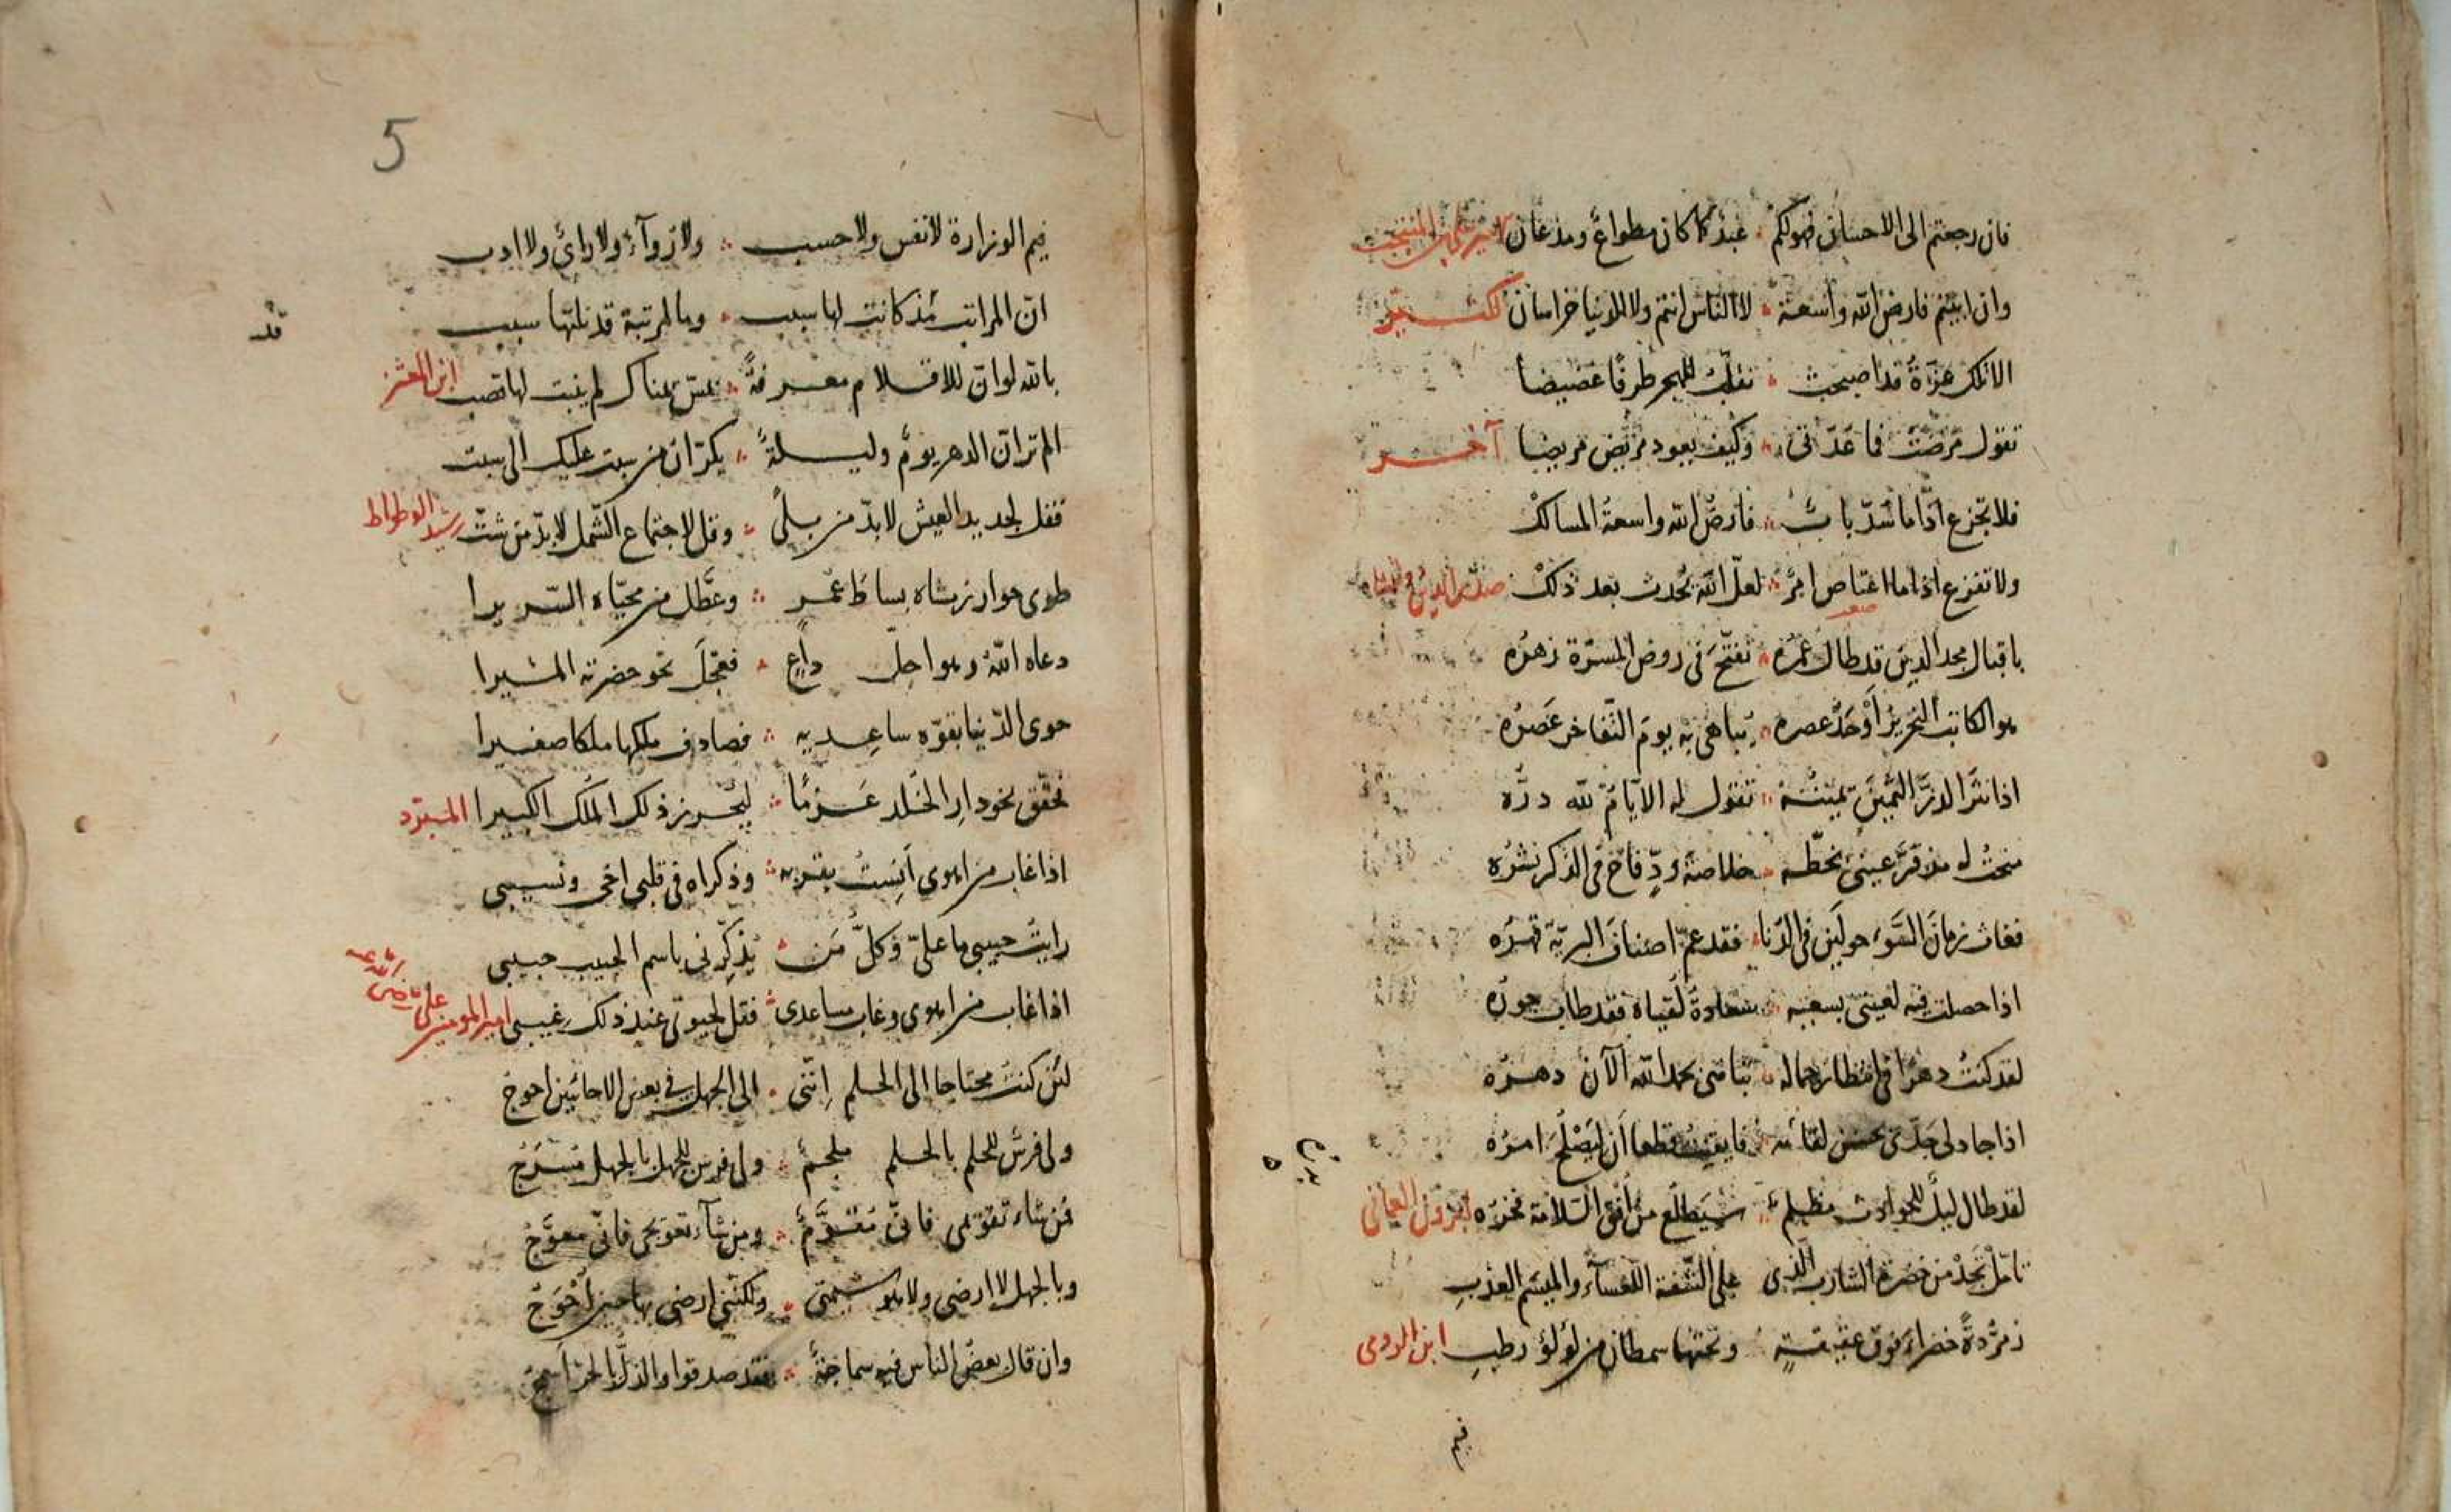 فان رجعتم الى الاحسان فهو لكم عبد كما كان مطواع ومذعان
وان ابيتم فارض الله واسعة لا الناس انتم ولا الدنيا خراسان كثير
الا تلك عزة قد اصبحت تقلب للهجر طرفا غضيضا
تقول مرضت فما عدتنى وكيف يعود مريض مريضا آخر
فلا تجزع اذا ما سد باب فارض الله واسعة المسالك
ولا تفزع اذا ما اعتاص امر لعل الله يحدث بعد ذلك صدر الدين
صعد
باقبال مجد الدين قد طال عمره تفتح فى روض المسرة زهره
هو الكاتب النحرير اوحد عصره يباهى به يوم التفاخر عصره
اذا نثر الدر الثمين يمينه تقول له الايام لله دره
منحت له مذ قر عينى بخطه خلاصة ود فاح فى الذكر نشره
زمان السوء فى الدنا فقد عم اصناف البرية قهره
اذا حصلت فيه لعينى بسعيه سعادة لقياه فقد طاب جوره
لقد كنت دهرا فى انتظار جماله بحمد الله الآن دهره
اذا جاد لى جدى بحسن لقائه فايقنت قطعا ان ليصلح امره
لقد طال ليل للحوادث مظلم سيطلع من افق السلامة فجره
تامل تجد من خضرة الشارب الذى على الشفة اللعساء والمبسم العذب
زمردة خضراء فوق عقيقة وتحتها سمطان من لؤلؤ رطب ابن الرومى
فيم
5
فيم الوزارة لا نفس ولا حسب ولا رواء ولا راى ولا ادب
ان المراتب مذ كانت لها سبب وما لمرتبة قد نلتها سبب
قد
بالله لو ان للاقلام معرفة بمس يمناك لم ينبت لها قصب ابن المعتز
الم تر ان الدهر يوم وليلة يكران من سبت عليك الى سبت
فقل لجديد العيش لا بد من بلى وقل لاجتماع الشمل لا بد من شت رشيد الوطواط
طوى خوارزمشاه بساط عمر وعطل من محياه السريرا
دعاه الله وهو اجل داع فعجل نحو حضرته المسيرا
حوى الدنيا بقوة ساعديه فصادف ملكها ملكا صغيرا
تحقق نحو دار الخلد عزما ليحرز ذلك الملك الكبيرا المبرد
اذا غاب من اهوى انست بقربه وذكراه فى قلبى اخى ونسيبى
رايت حبيبى ما على وكل من يذكرنى باسم الحبيب حبيبى
اذا غاب من اهوى وغاب مساعدى فقل لحيوتى عند ذلك غيبى امير المومنين على
لئن كنت محتاجا الى الحلم اننى الى الجهل فى بعض الاحايين احوج
ولى فرس للحلم بالحلم ملجم ولى فرس للجهل بالجهل مسرج
فمن شاء تقويمى فانى مقوم ومن شاء تعويجى فانى معوج
وبالجهل لا ارضى ولا هو شيمتى ولكننى ارضى بها حين احوج
وان قال بعض الناس فيه سماجة فقد صدقوا والذل بالحر اسمج